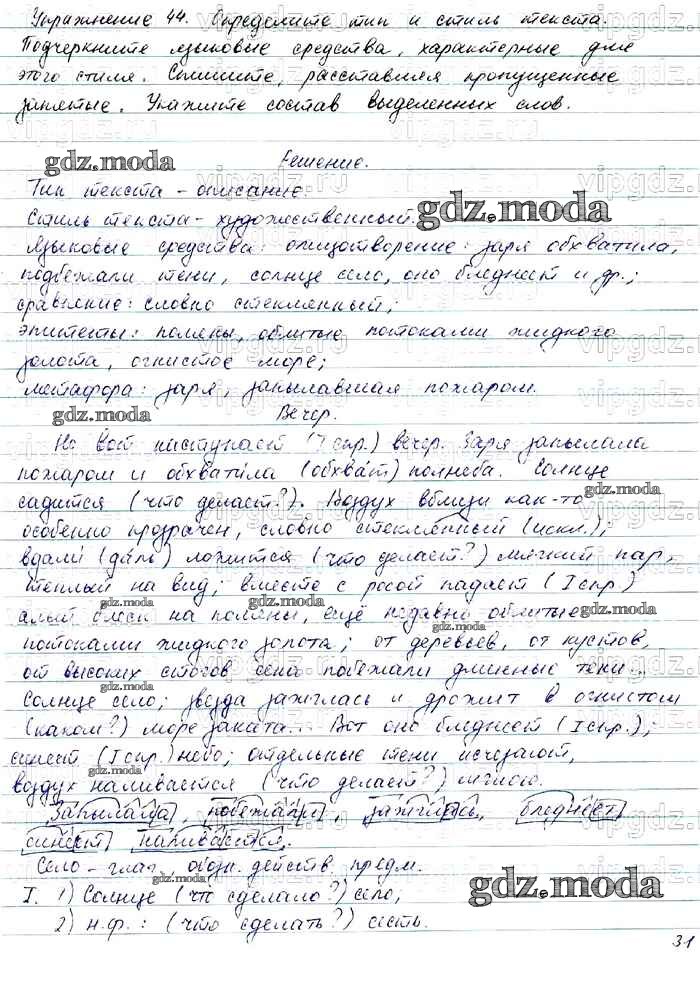 Упражнение 44. Определите тип и стиль текста.
Подчеркните языковые средства, характерные для
этого стиля. Спишите, расставляя пропущенные
запятые. Укажите состав выделенных слов.
Решение.
Тип текста - описание.
Стиль текста - художественный.
Языковые средства: олицетворение: заря обхватила,
подбежали тени, солнце село, оно бледнеет и др.;
сравнение: словно стеклянный;
эпитеты: поляны, облитые потоками жидкого
золота, огнистое море;
метафора: заря, запылавшая пожаром.
Вечер.
Но вот наступает (I спр.) вечер. Заря запылала
пожаром и обхватила (обхват) полнеба. Солнце
садится (что делает?). Воздух вблизи как-то
особенно прозрачен, словно стеклянный (искл.);
вдали (даль) ложится (что делает?) мягкий пар,
теплый на вид; вместе с росой падает (I спр.)
алый блеск на поляны, ещё недавно облитые
потоками жидкого золота; от деревьев, от кустов,
от высоких стогов сена побежали длинные тени...
Солнце село; звезда зажглась и дрожит в огнистом
(каком?) море заката... Вот оно бледнеет (I спр.);
синеет (I спр.) небо; отдельные тени исчезают,
воздух наливается (что делает?) мглою.
Запылала, побежали, зажглась, бледнеет,
синеет, наливается.
Село - глаг., обозн. действ. предм.
I. 1) Солнце (что сделало?) село;
2) н.ф.: (что сделать?) сесть.
31
gdz.moda
vipgdz.ru